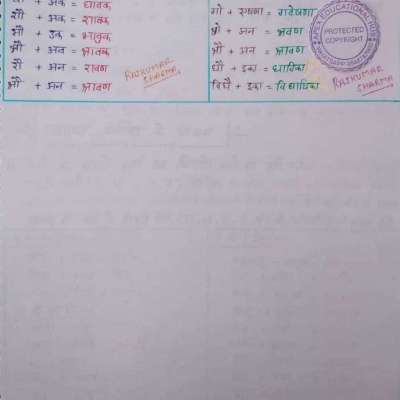 + अक = धावक
शौ + अक = शावक
भौ + उक = भावुक
+ = श्रावक
रौ + अन = रावण
श्रौ + अन = श्रावण
RAJKUMAR
SHARMA
गो + एषणा = गवेषणा
श्रो + अन = श्रवण
+ अन = श्रावण
धौ + इका = धाविका
विधै + इका = विधायिका
APEX EDUCATIONAL
PROTECTED
COPYRIGHT
RAJKUMAR
SHARMA